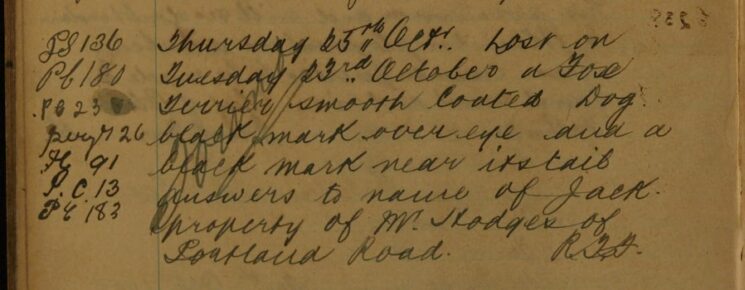 PS 136 Thursday 25th Oct. Lost on
PC 180 Tuesday 23rd October a Fox
PC 23 Terrier smooth Coated Dog
Sergt 26 black mark over eye and a
91 black mark near its tail
P.C. 13 answers to name of Jack.
PC 183 property of Mr. Hodges of
Portland Road.